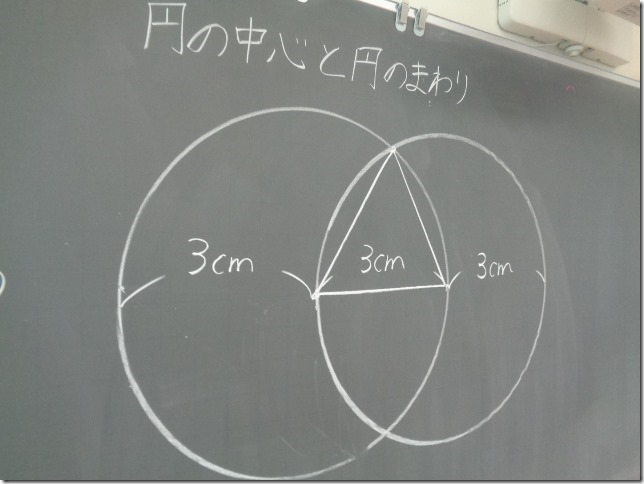 円の中心と円のまわり
3cm
3cm
3cm